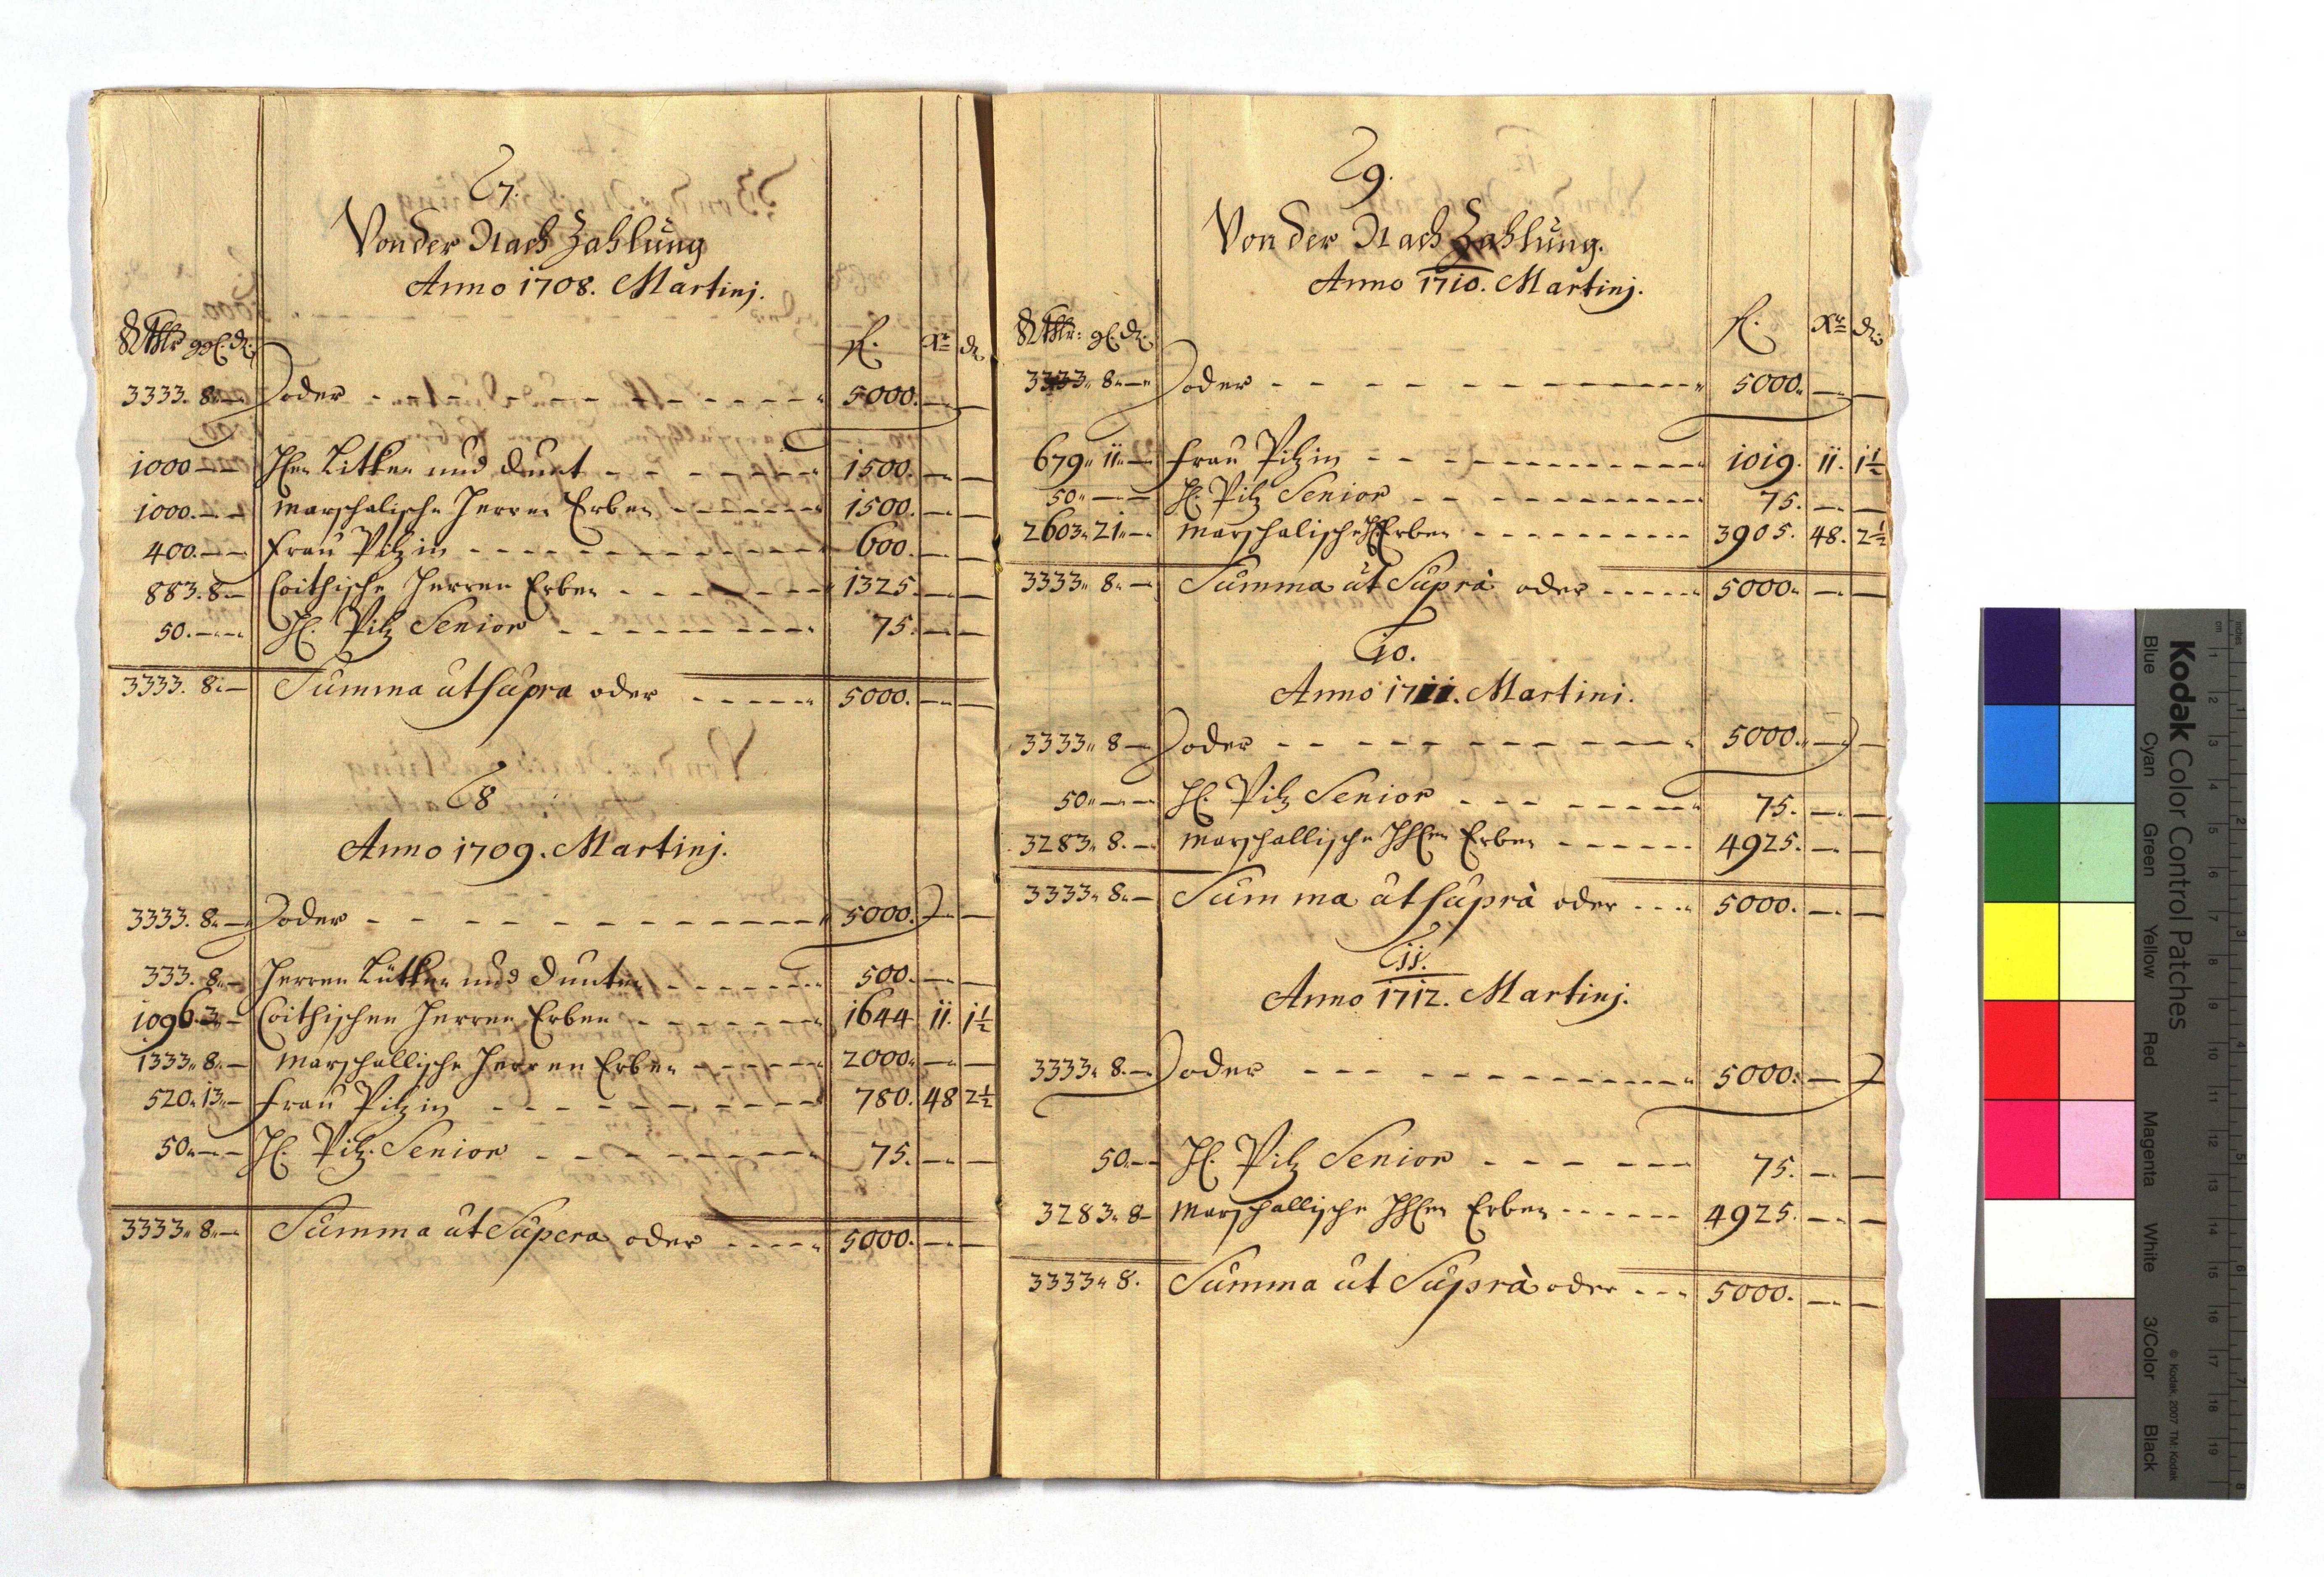 7.
Von der Nach Zahlung
Anno 1708. Martinj.
Rthlr ggl. d. fl. Xr d
3333. 8. — oder 5000. — —
1000 — — HEn Litken und Dunt 1500. — —
1000. — — Marschalische Herren Erben 1500. — —
400. — — Frau Pilzin 600. — —
883. 8 — Coithische Herren Erben 1325. — —
50. — — H. Pilz Senior 75. — —
3333. 8. — Summa ut supra oder 5000. — —
8
Anno 1709. Martinj.
3333. 8. — oder 5000. — —
333. 8. — Herren Lütken und Dunten 500. — —
1096. 3. — Coithischen Herren Erben 1644 11. 1½
1333. 8. — Marschallische Herren Erben 2000. — —
520. 13. — Frau Pilzin 780. 48 2½
50. — — H. Pilz. Senior 75. — —
3333. 8. — Summa ut Supera oder 5000. — —
9.
Von der Nach Zahlung.
Anno 1710. Martinj.
Rthlr: gl. d. fl. Xr d
3333. 8. — oder 5000. — —
679. 11. — Frau Pilzin 1019. 11. 1½
50. — — H. Pilz Senior 75. — —
2603. 21. — Marschalische H. Erben 3905. 48. 2½
3333. 8. — Summa ut Suprà oder 5000. — —
10.
Anno 1711. Martini.
3333. 8 — oder 5000. — —
50. — — H. Pilz Senior 75. — —
3283. 8. — Marschallische HHEn Erben 4925. — —
3333. 8. — Summa ut suprà oder 5000. — —
11.
Anno 1712. Martinj.
3333. 8. — oder 5000. — —
50. — — H. Pilz Senior 75. — —
3283. 8 — Marschallische HHEn Erben 4925. — —
3333. 8. Summa ut Suprà oder 5000. — —
Kodak Color Control Patches
© Kodak, 2007 TM: Kodak
Blue Cyan Green Yellow Red Magenta White 3/Color Black
inches 1 2 3 4 5 6 7 8
cm 1 2 3 4 5 6 7 8 9 10 11 12 13 14 15 16 17 18 19